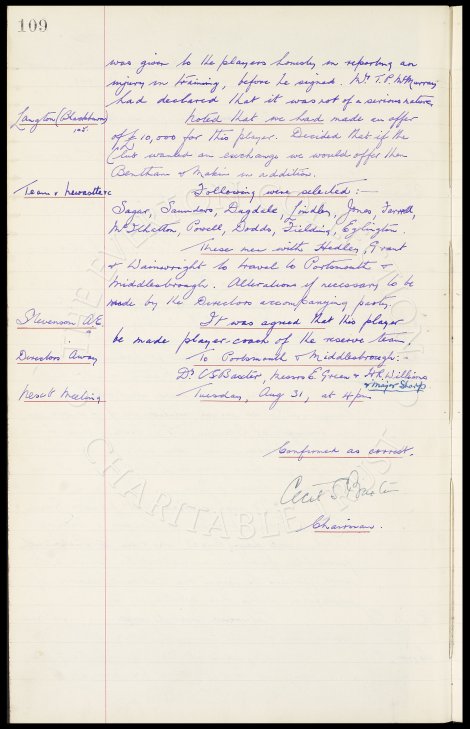 109
was given to the players honesty in reporting an
injury in training, before he signed. Mr. T. P. McMurray
had declared that it was not of a serious nature.
Langton (Blackburn) Int. Noted that we had made an offer
of £10,000 for this player. Decided that if the
Club wanted an exchange we would offer them
Bentham & Makin in addition.
Team v Newcastle Following were selected:-
Sagar, Saunders, Dugdale, Lindley, Jones, Farrell,
McIlhatton, Powell, Dodds, Fielding, Eglington.
These men with Hedley, Grant
& Wainwright to travel to Portsmouth &
Middlesbrough. Alterations if necessary to be
made by the Directors accompanying party.
Stevenson A.E. It was agreed that this player
be made player-coach of the reserve team.
Directors Away To Portsmouth & Middlesbrough:-
Dr. C S Baxter, Messrs E. Green & H R Williams
& Major Sharp
Next Meeting Tuesday, Aug 31, at 4 pm
Confirmed as correct.
Cecil S. Baxter
Chairman.
CHARITABLE TRUST